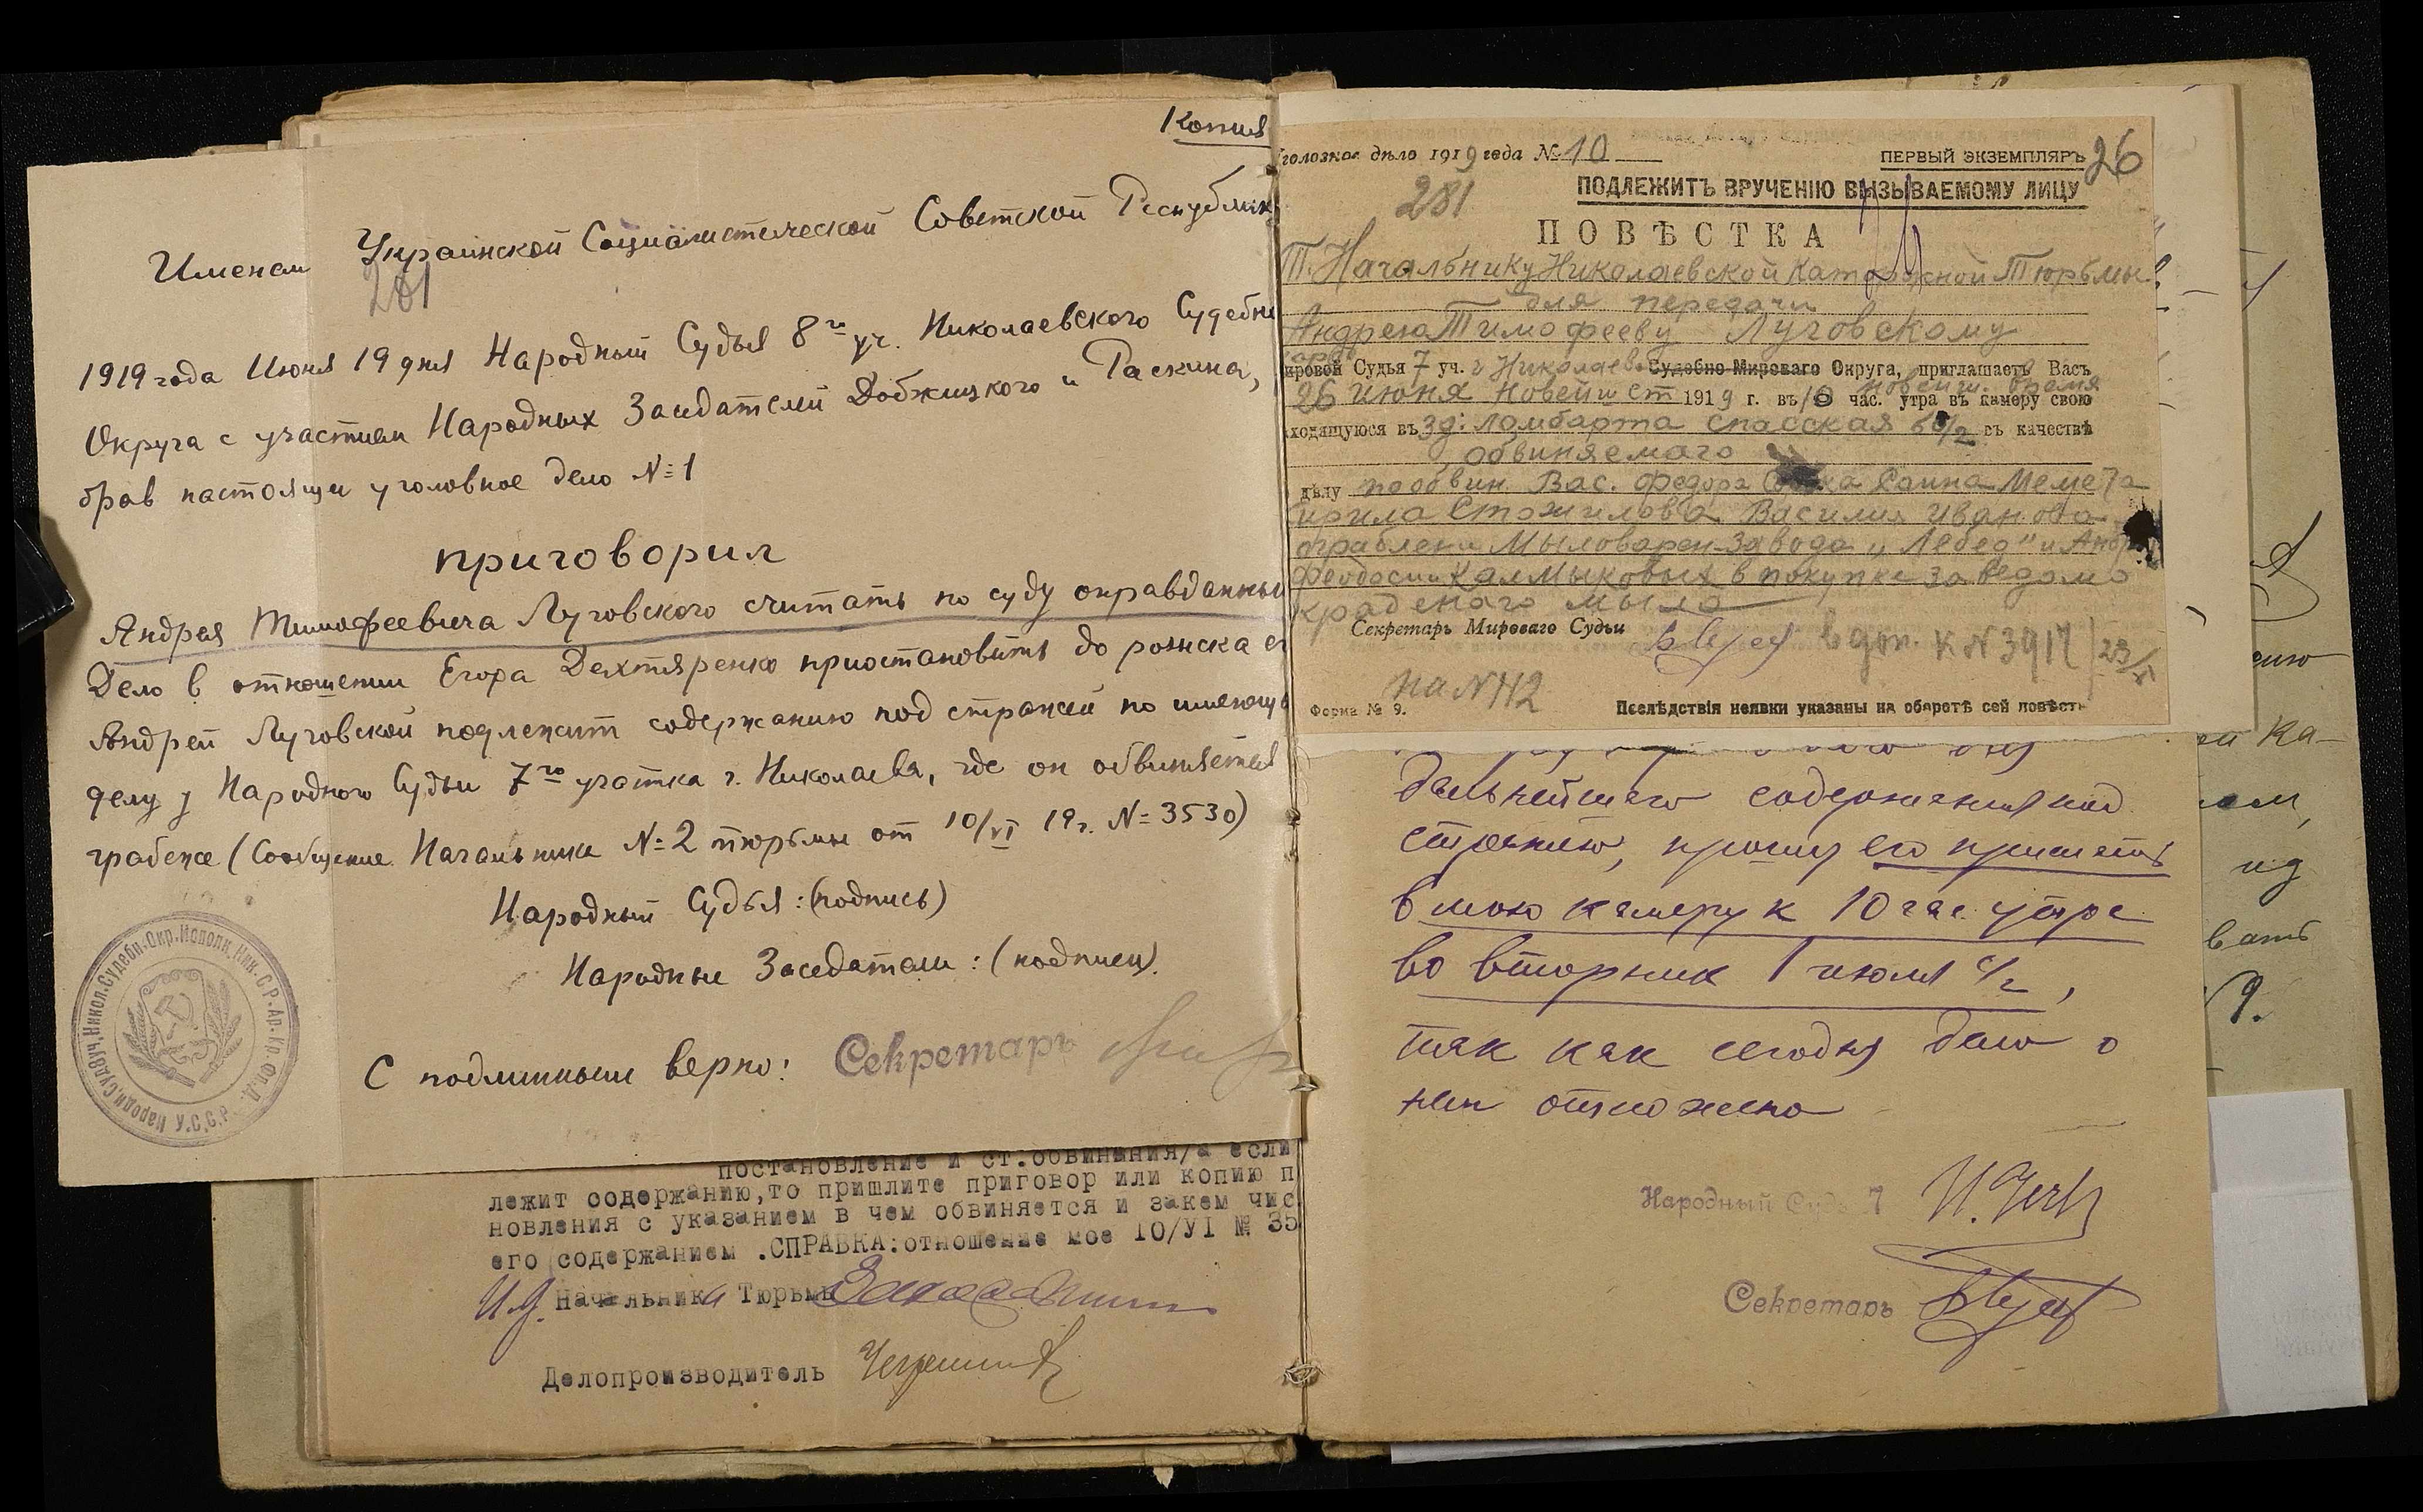 Копия
Именем Украинской Социалистической Советской Республик
281
1919 года Июня 19 дня Народный Судья 8го уч. Николаевского Судебн
Округа с участием Народных Заседателей Добжицкого и Раскина,
брав настоящее уголовное дело №1
приговорил
Андрея Тимофеевича Луговского считать по суду оправданны
Дело в отношении Егора Дехтяренко приостановить до розиска ег
Андрей Луговской подлежит содержанию под стражей по имеющ
делу у Народного Судьи 7го участка г. Николаева, где он обвиняется
грабеже (Сообщение Начальника №2 тюрьмы от 10/VI 19г. №3530)
Народный Судья: (подпись)
Народные Заседатели: (подписи).
С подлинным верно: Секретарь
Народн. Суд. 8 уч. Никол. Судебн. Окр. Исполк. Ник. С.Р. Ар. Кр. Оп. Д. У.С.С.Р.
постановление и ст.обвинения/а если
лежит содержанию,то пришлите приговор или копию п
новления с указанием в чем обвиняется и закем чис
его содержанием .СПРАВКА:отношение мое 10/УI № 35
И.д. Начальника Тюрьмы
Делопроизводитель
головное дѣло 1919 года № 10
ПЕРВЫЙ ЭКЗЕМПЛЯРЪ 26
281
ПОДЛЕЖИТЪ ВРУЧЕНІЮ ВЫЗЫВАЕМОМУ ЛИЦУ
ПОВѢСТКА
Т. Начальнику Николаевской Каторжной Тюрьмы
для передачи
Андрею Тимофееву Луговскому
ировой Судья 7 уч. г Николаев Судебно-Мирового Округа, приглашаетъ Васъ
26 июня новейш ст 1919 г. въ 10 час. новейш. время утра въ камеру свою
ходящуюся въ зд: ломбарта спасская 60/2 въ качествѣ
обвиняемаго
дѣлу по обвин. Вас. Федора Саина Мемета
Кирила Стожилова Василия Иванова
ограблени Мыловарен завода „Лебед" и Андр
Феодосии Калмыковых в покупке заведомо
краденаго мыла
Секретарь Мирового Судьи
в доп. к №3917 23/VI
на №112
Форма № 9.
Послѣдствія неявки указаны на оборотѣ сей повѣст
дальнейшего содержания под
стражею, прошу его прислать
в мою камеру к 10 час. утра
во вторник 1 июля с/г,
так как сегодня дело о
нем отложено
Народный Судья 7
Секретарь